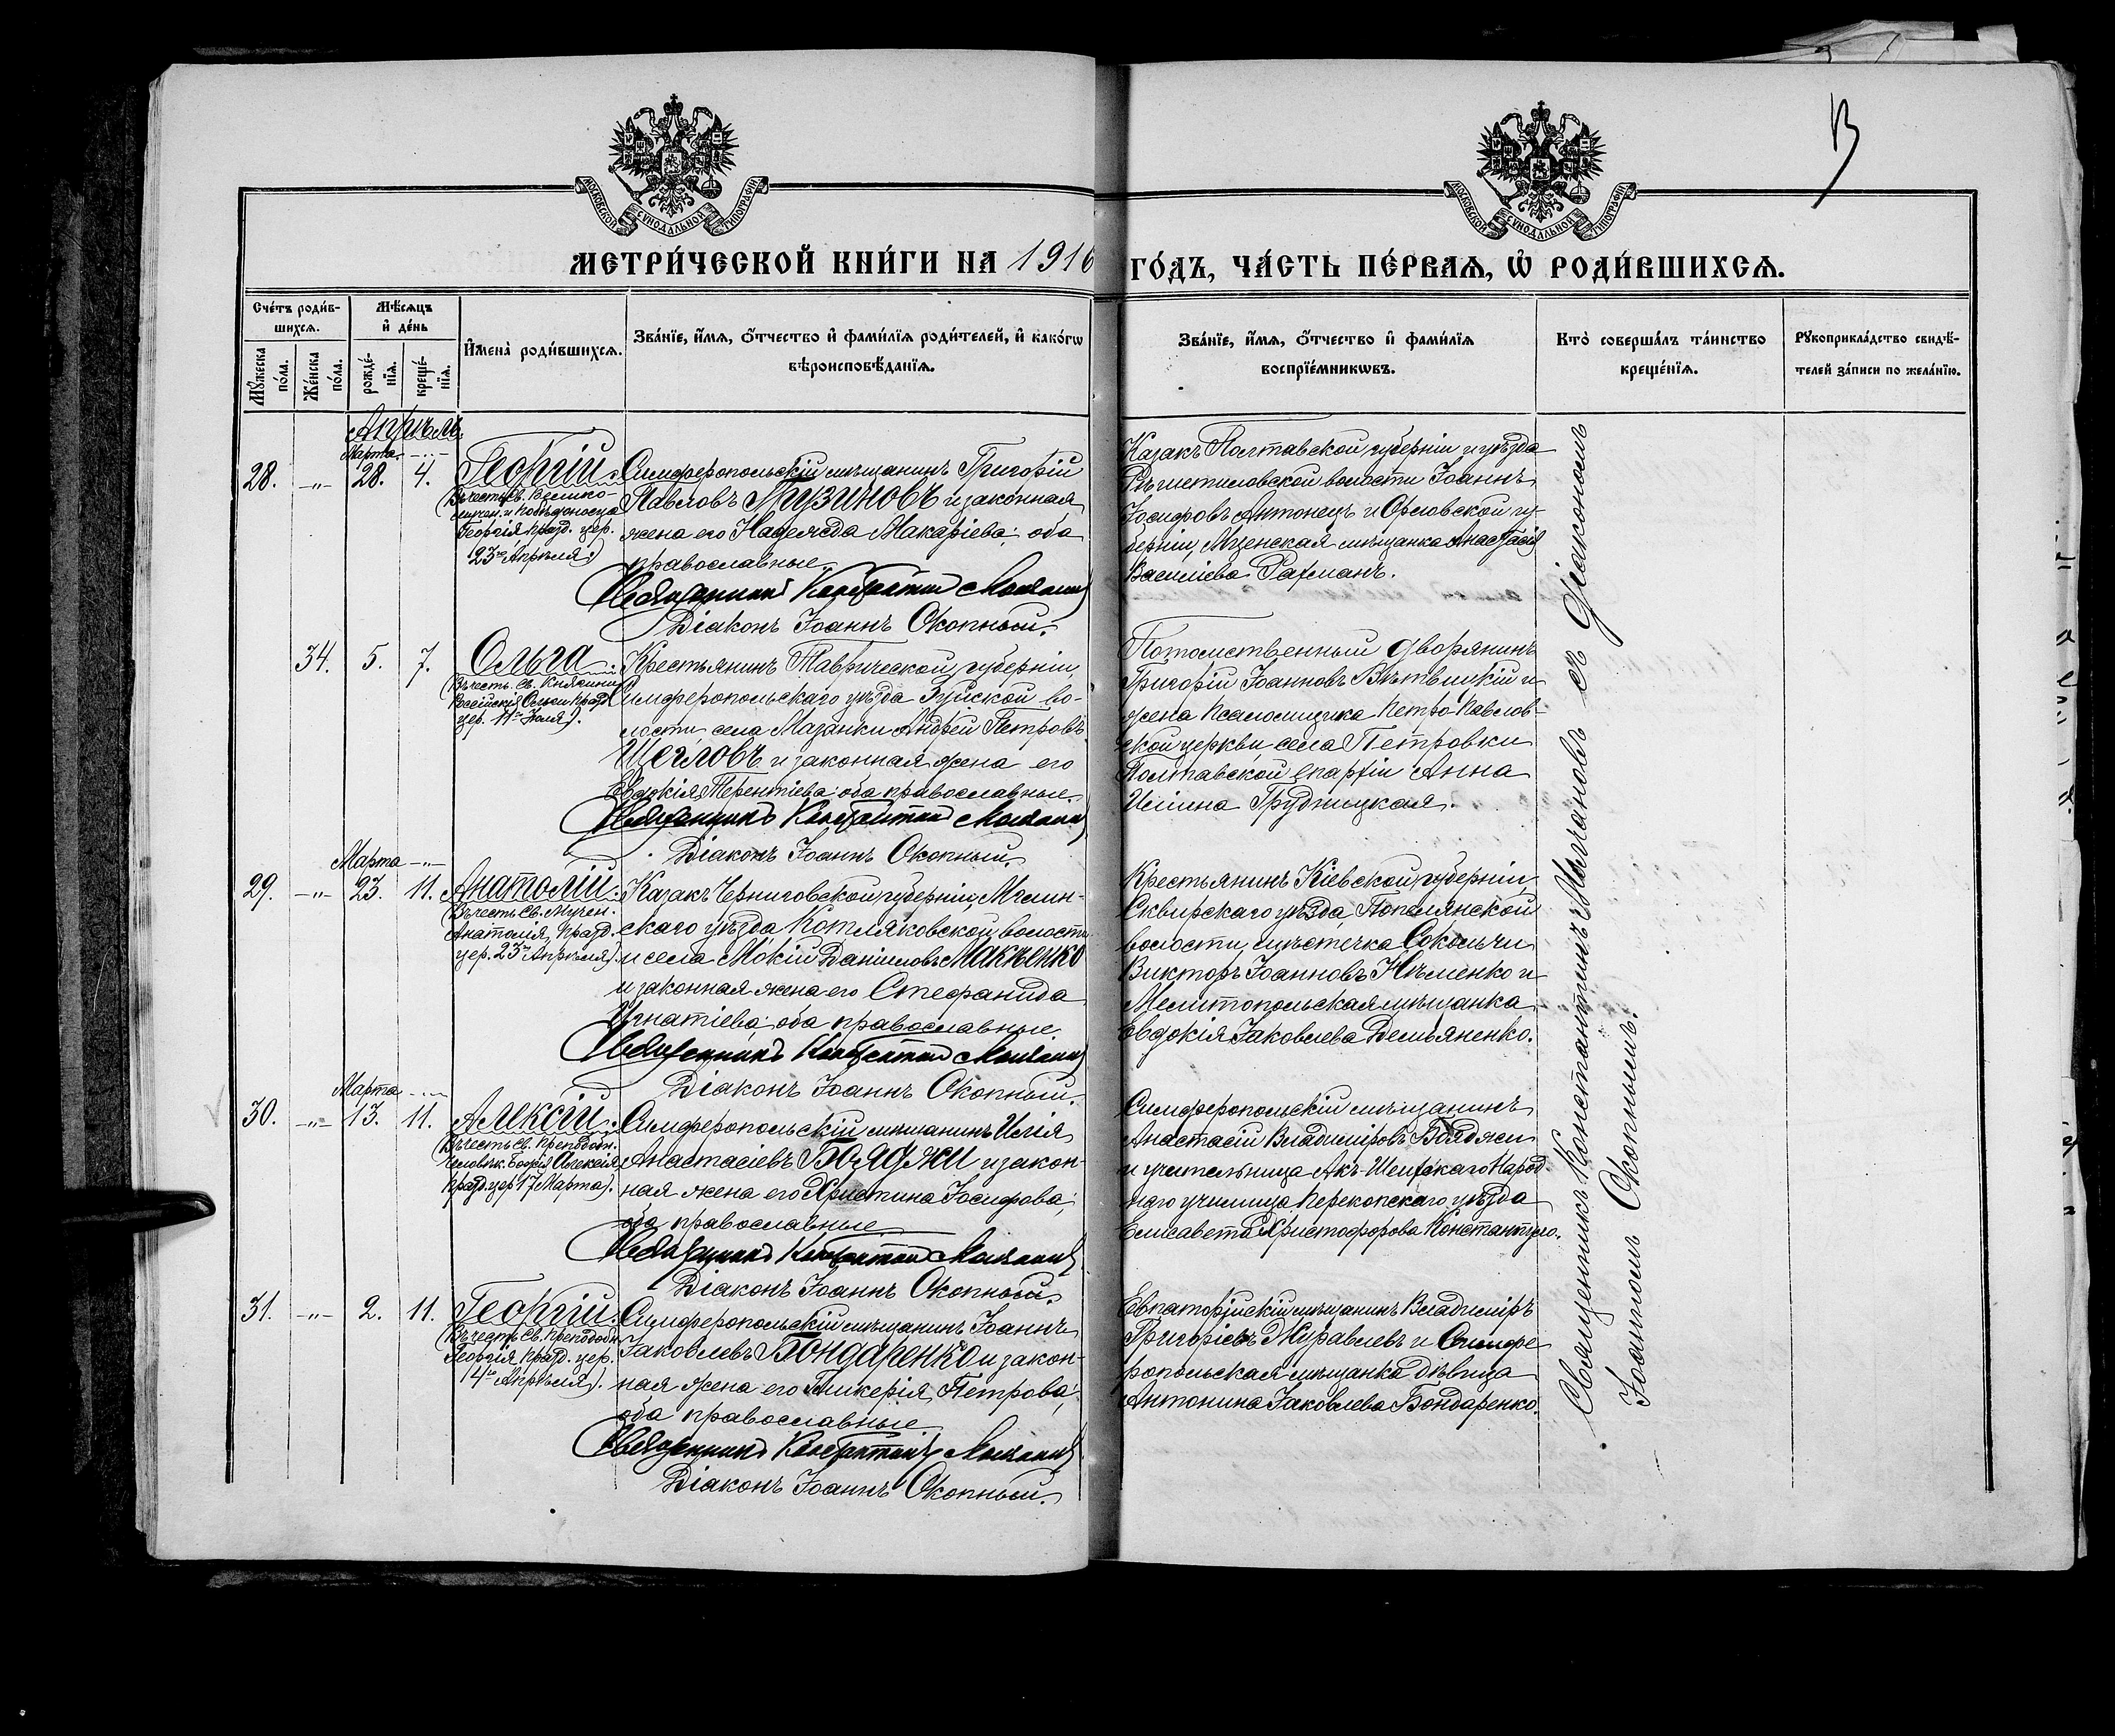 13
МОСКОВСКОЙ СѴНОДАЛЬНОЙ ТИПОГРАФІИ
МОСКОВСКОЙ СѴНОДАЛЬНОЙ ТИПОГРАФІИ
МЕТРИ́ЧЕСКОЙ КНИ́ГИ НА 1916 ГО́ДЪ, ЧА́СТЬ ПЕ́РВАѦ, Ѡ҆ РОДИ́ВШИХСѦ.
Сче́тъ роди́вшихсѧ.
Мꙋ́жеска по́ла.
Же́нска по́ла.
Мѣ́сѧцъ и҆ де́нь
рожде́нїѧ.
креще́нїѧ.
И҆мена̀ роди́вшихсѧ.
Зва́нїе, и҆́мѧ, ѻ҆́тчество и҆ фами́лїѧ роди́телей, и҆ како́гѡ
вѣроисповѣ́данїѧ.
Зва́нїе, и҆́мѧ, ѻ҆́тчество и҆ фами́лїѧ
воспрїе́мникѡвъ.
Кто̀ соверша́лъ та́инство
креще́нїѧ.
Рꙋкоприкла́дство свидѣ́-
телей за́писи по жела́нїю.
Апрѣль
Марта
28. -„- 28. 4. Георгій.
(Въ честь Св. Велико-
мучен. и Побѣдоносца
Георгія празд. цер.
23го Апрѣля.)
Симферопольскій мѣщанинъ Григорій
Павловъ Грузиновъ и законная
жена его Надежда Макаріева; оба
православные.
Священникъ Константинъ Молчановъ
Діаконъ Іоаннъ Окопный.
Казакъ Полтавской губерніи и уѣзда
Рѣшетиловской волости Іоаннъ
Іосифовъ Антонецъ и Орловской гу-
берніи, Мценская мѣщанка Анастасія
Василіева Рахманъ.
34. 5. 7. Ольга.
(Въ честь Св. Княгини
Россійскія Ольги празд.
цер. 11го Іюля).
Крестьянинъ Таврической губерніи,
Симферопольскаго уѣзда Зуйской во-
лости, села Мазанки Андрей Петровъ
Щегловъ и законная жена его
Евдокія Терентіева; оба православные.
Священникъ Константинъ Молчановъ
Діаконъ Іоаннъ Окопный.
Потомственный дворянинъ
Григорій Іоанновъ Вѣтвицкій и
жена псаломщика Петро-Павлов-
ской церкви села Петровки
Полтавской епархіи Анна
Иліина Грудницкая.
Марта -„-
29. -„- 23. 11. Анатолій.
(Въ честь Св. Мучен.
Анатолія, празд.
цер. 23го Апрѣля).
Казакъ Черниговской губерніи, Мглин-
скаго уѣзда Котляковской волости
и села Мокій Даніиловъ Макѣенко
и законная жена его Стефанида
Игнатіева; оба православные.
Священникъ Константинъ Молчановъ
Діаконъ Іоаннъ Окопный.
Крестьянинъ Кіевской губерніи,
Сквирскаго уѣзда, Попелянской
волости, мѣстечка Сокольчи
Викторъ Іоанновъ Нѣменко и
Мелитопольская мѣщанка
Евдокія Іаковлева Демьяненко.
Марта
30. -„- 13. 11. Алексій.
(Въ честь Св. Преподобн.
человѣк. Божія Алексія,
празд. цер. 17 Марта).
Симферопольскій мѣщанинъ Илія
Анастасіевъ Бояджи и закон-
ная жена его Христина Іосифова;
оба православные
Священникъ Константинъ Молчановъ
Діаконъ Іоаннъ Окопный.
Симферопольскій мѣщанинъ
Анастасій Владиміровъ Бояджи
и учительница Акъ-Шеихскаго Народ-
наго училища Перекопскаго уѣзда
Елисавета Христофорова Константуло.
31. -„- 2. 11. Георгій.
(Въ честь Св. Преподобн.
Георгія празд. цер.
14го Апрѣля).
Симферопольскій мѣщанинъ Іоаннъ
Іаковлевъ Бондаренко и закон-
ная жена его Гликерія Петрова;
оба православные
Священникъ Константинъ Молчановъ
Діаконъ Іоаннъ Окопный.
Евпаторійскій мѣщанинъ Владиміръ
Григоріевъ Журавлевъ и Симфе-
ропольская мѣщанка дѣвица
Антонина Іаковлева Бондаренко.
Священникъ Константинъ Молчановъ съ діакономъ
Іоанномъ Окопнымъ.